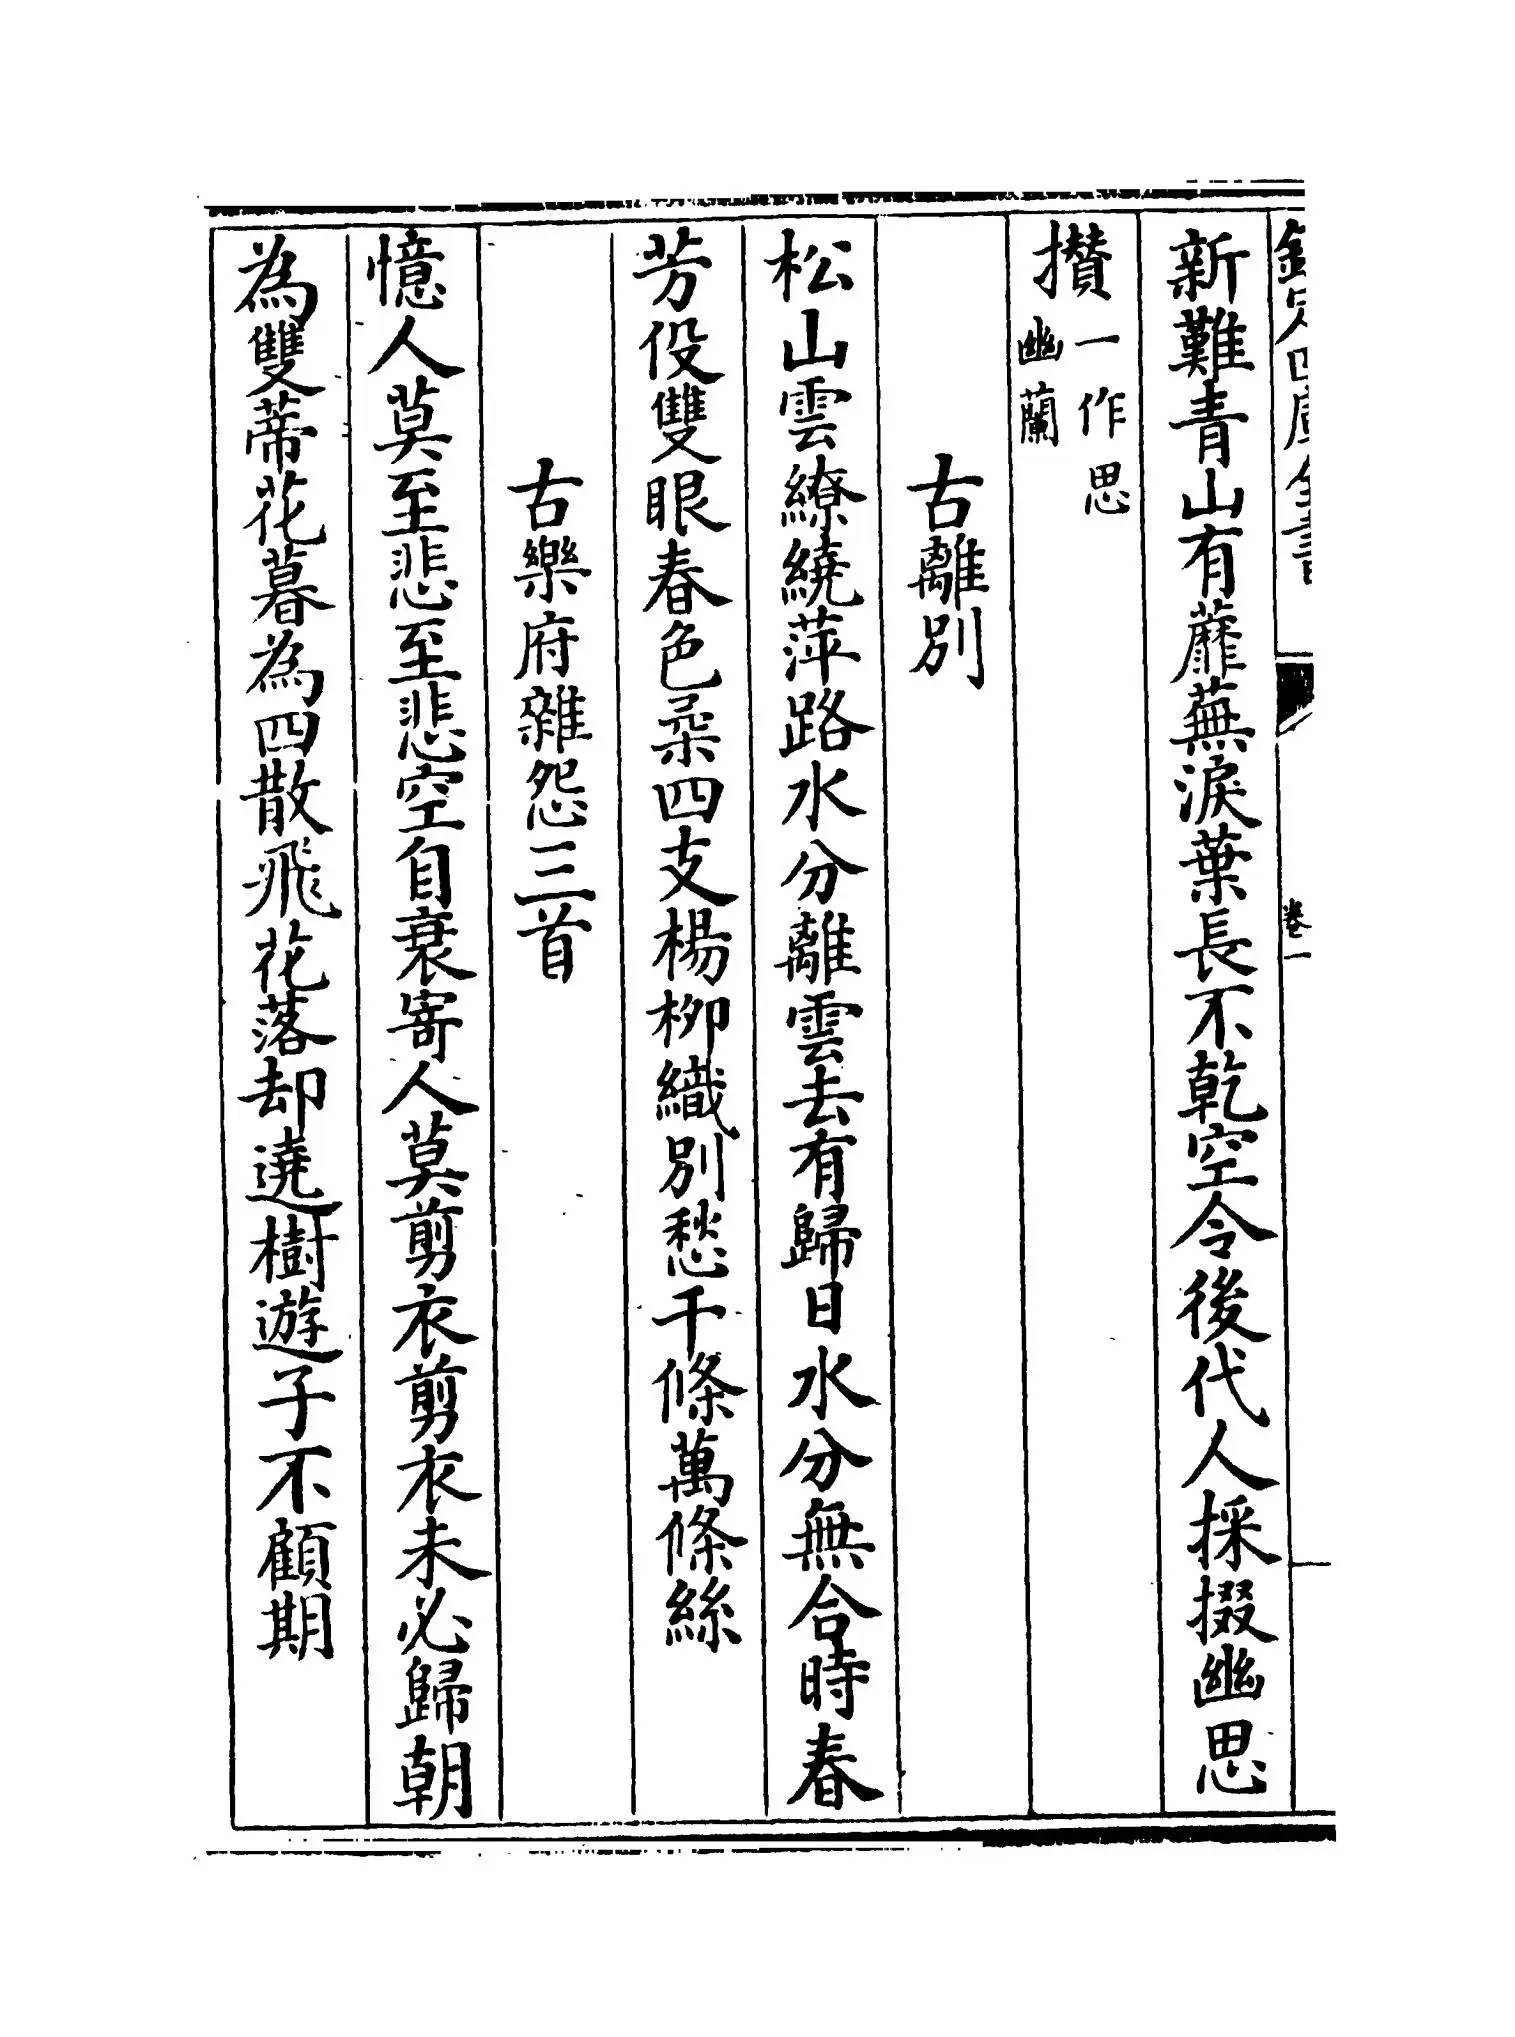 欽定四庫全書
卷一
新難青山有蘼蕪淚葉長不乾空令後代人採掇幽思
攅一作思幽蘭
古離別
松山雲繚繞萍路水分離雲去有歸日水分無合時春
芳役雙眼春色染四支楊柳織別愁千條萬條絲
古樂府雜怨三首
憶人莫至悲至悲空自衰寄人莫剪衣剪衣未必歸朝
為雙蒂花暮為四散飛花落却遶樹遊子不顧期